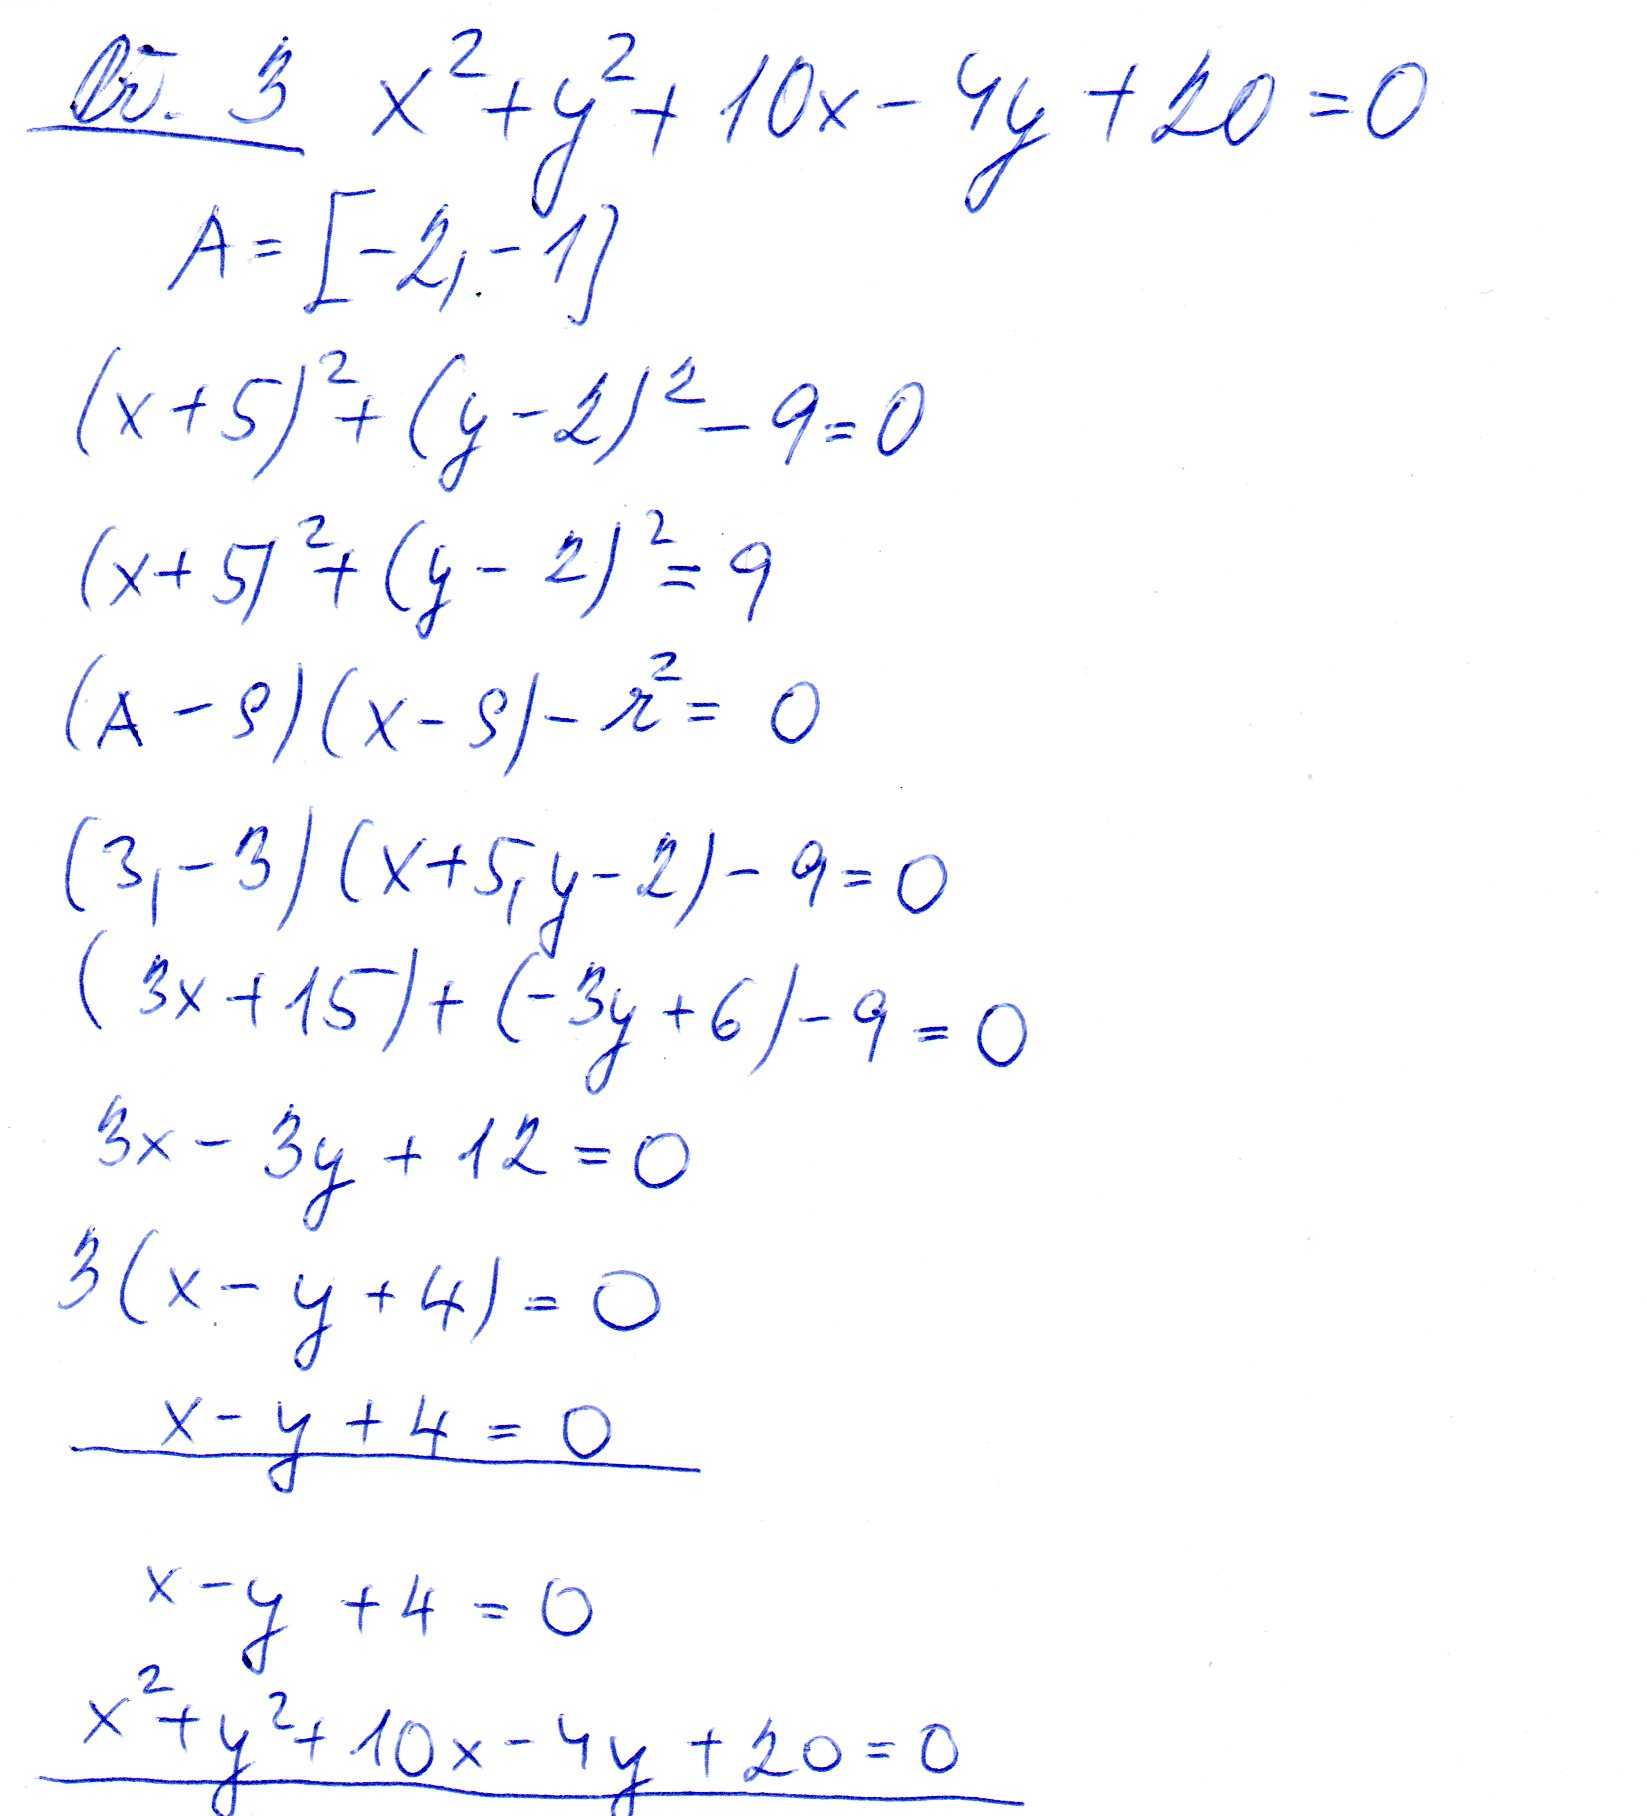 Př. 3 x²+y²+10x-4y+20=0
A=[-2,-1]
(x+5)²+(y-2)²-9=0
(x+5)²+(y-2)²=9
(A-S)(x-S)-r²=0
(3,-3)(x+5,y-2)-9=0
(3x+15)+(-3y+6)-9=0
3x-3y+12=0
3(x-y+4)=0
x-y+4=0
x-y+4=0
x²+y²+10x-4y+20=0